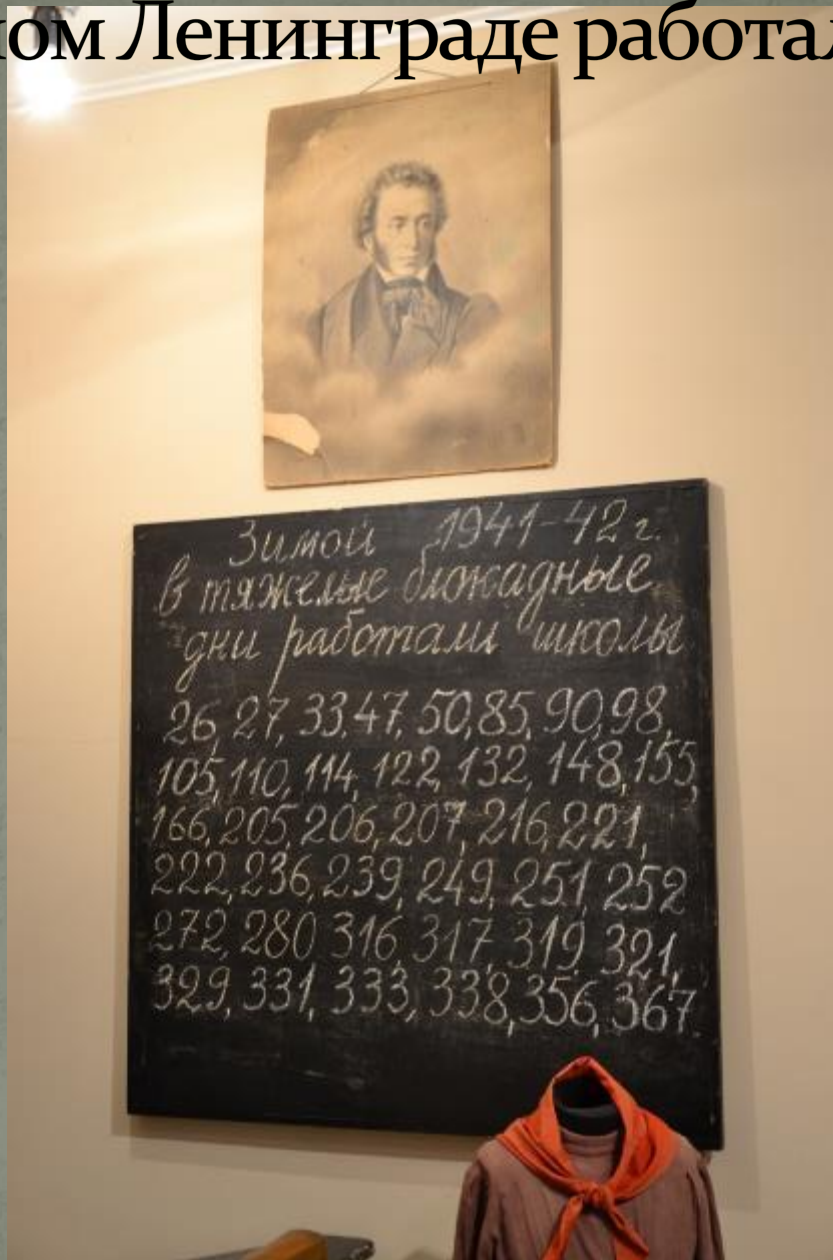 ом Ленинграде работал
Зимой 1941-42 г.
в тяжелые блокадные
дни работали школы
26, 27, 33, 47, 50, 85, 90, 98,
105, 110, 114, 122, 132, 148, 155,
166, 205, 206, 207, 216, 221,
222, 236, 239, 249, 251, 252
272, 280 316, 317, 319, 321,
329, 331, 333, 338, 356, 367.